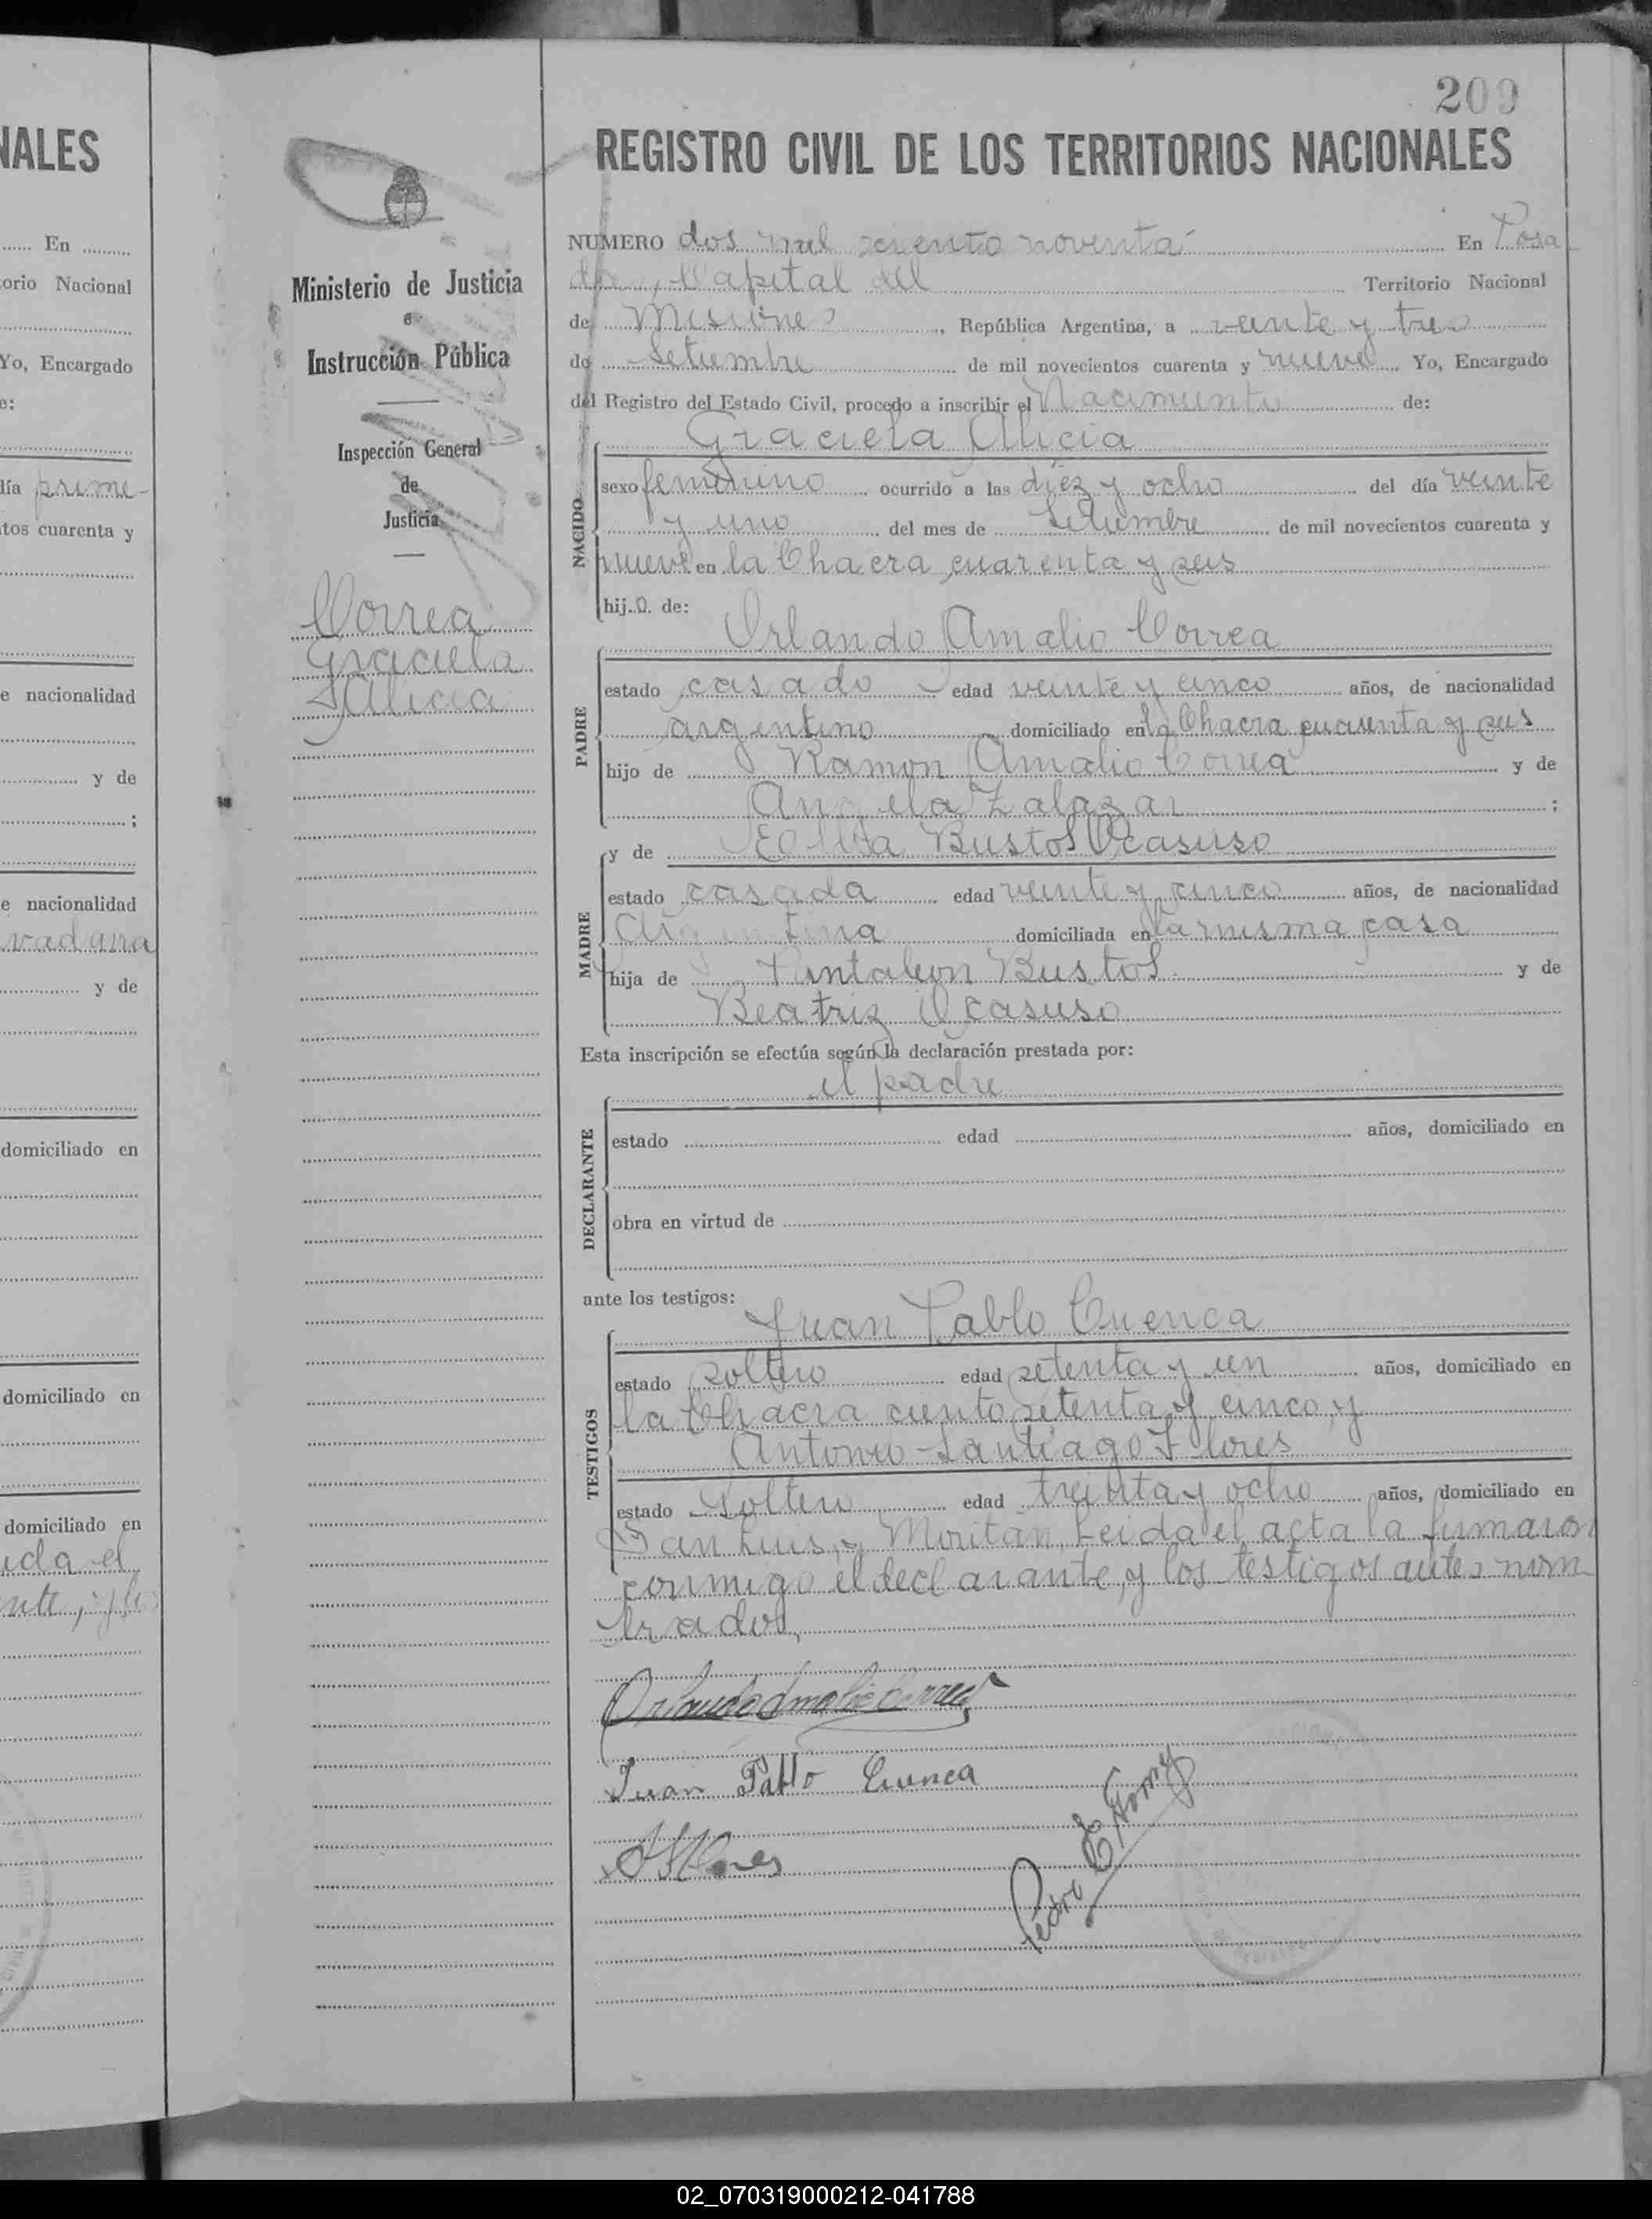 NALES
En
orio Nacional
Yo, Encargado
e:
día prime-
tos cuarenta y
e nacionalidad
y de
;
e nacionalidad
vadana
y de
domiciliado en
domiciliado en
domiciliado en
ida el
Ministerio de Justicia
e
Instrucción Pública
Inspección General
de
Justicia
Correa
Graciela
Alicia
209
REGISTRO CIVIL DE LOS TERRITORIOS NACIONALES
NUMERO dos mil ciento noventa En Posa
das, Capital del Territorio Nacional
de Misiones, República Argentina, a veinte y tres
de Setiembre de mil novecientos cuarenta y nueve Yo, Encargado
del Registro del Estado Civil, procedo a inscribir el Nacimiento de:
Graciela Alicia
NACIDO
sexo femenino ocurrido a las diez y ocho del día veinte
y uno del mes de Setiembre de mil novecientos cuarenta y
nueve en la Chacra cuarenta y seis
hij.a. de:
Orlando Amalio Correa
PADRE
estado casado edad veinte y cinco años, de nacionalidad
argentino domiciliado en la Chacra cuarenta y seis
hijo de Ramon Amalio Correa y de
Angela Zalazar ;
MADRE
y de Bustos Ocasuso
estado casada edad veinte y cinco años, de nacionalidad
Argentina domiciliada en la misma casa
hija de Pantaleon Bustos y de
Beatriz Ocasuso
Esta inscripción se efectúa según la declaración prestada por:
el padre
DECLARANTE
estado edad años, domiciliado en
obra en virtud de
ante los testigos:
Juan Pablo Cuenca
TESTIGOS
estado soltero edad setenta y un años, domiciliado en
la Chacra ciento setenta y cinco, y
Antonio Santiago Flores
estado Soltero edad treinta y ocho años, domiciliado en
San Luis, y Moritán, Leida el acta la firmaron
conmigo el declarante, y los testigos antes nom
brados,
Orlando Amalio Correa
Juan Pablo Cuenca
Flores
Pedro
02_070319000212-041788